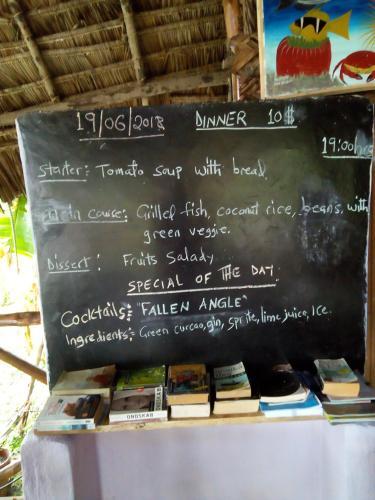 19/06/2018 DINNER 10$
19:00hrs
Starter: Tomato soup with bread.
Main course: Grilled fish, coconut rice, beans, with
green veggie.
Dissert: Fruits Salady.
SPECIAL OF THE DAY.
Cocktails: "FALLEN ANGLE"
Ingredients:- Green curcao, gin, sprite, lime juice, Ice.
ONDSKAB